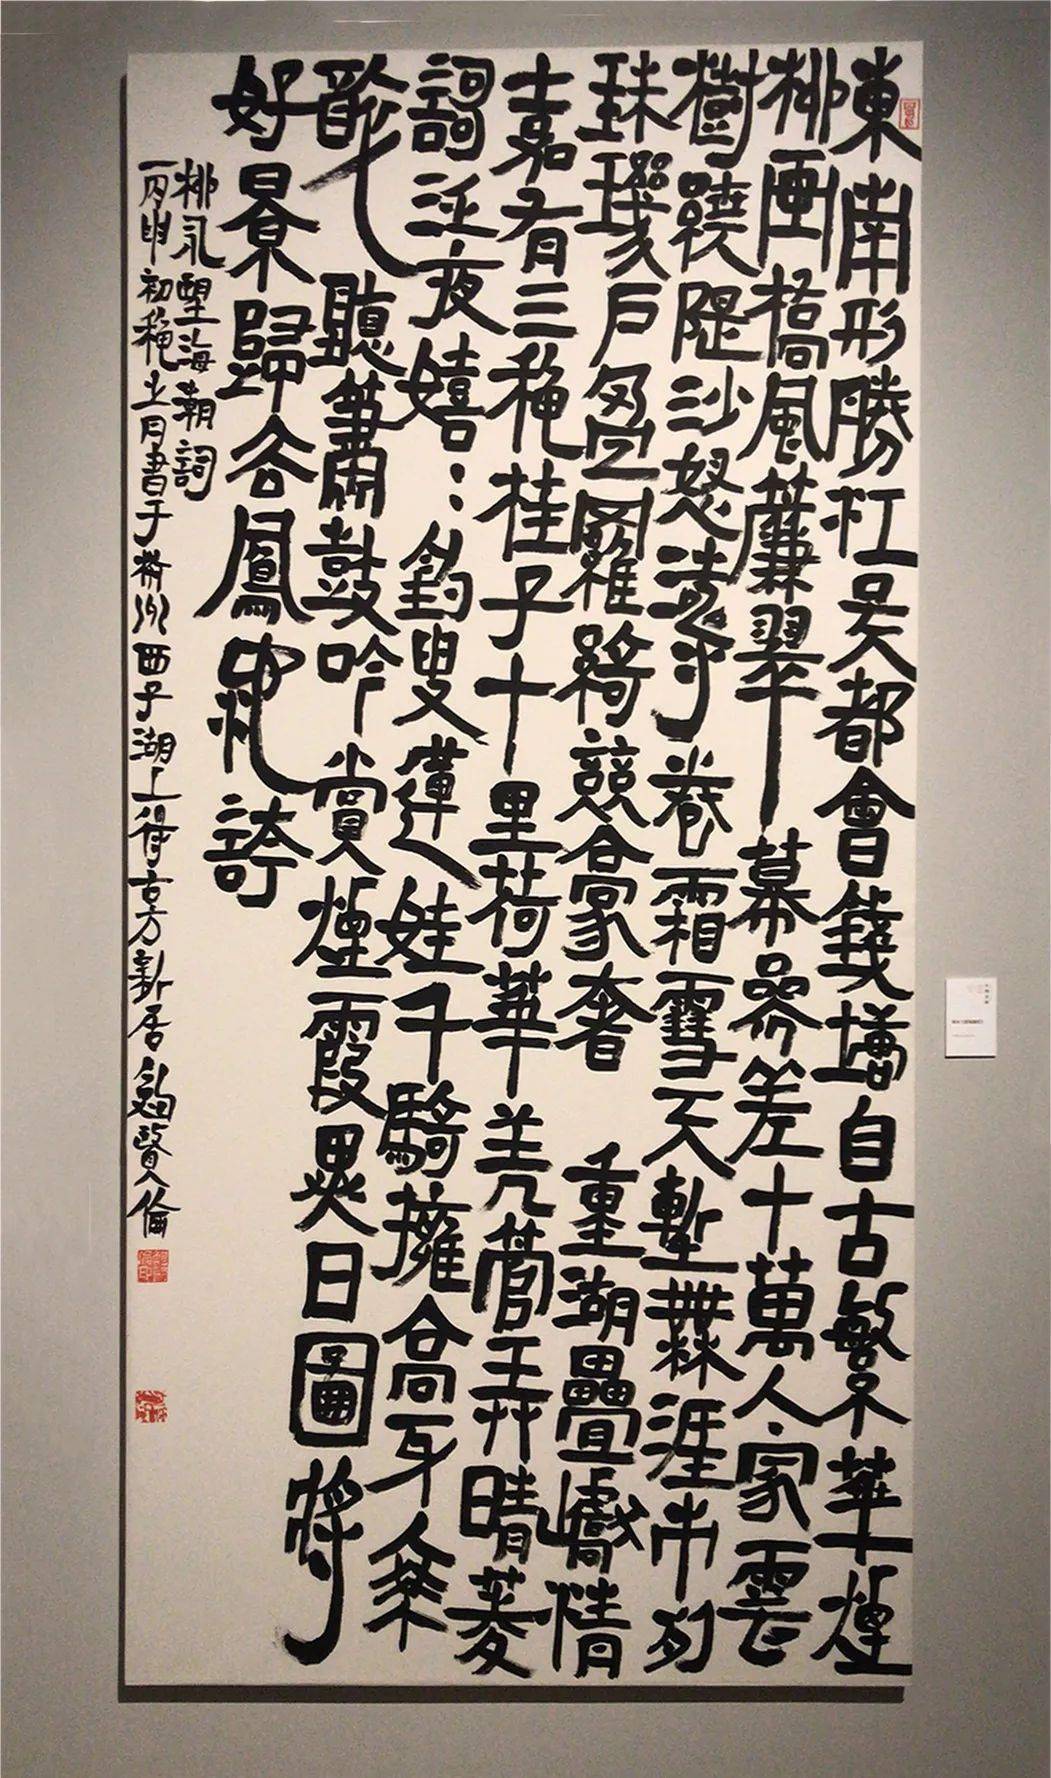 東南形勝江吴都會錢塘自古繁華煙
柳畫橋風簾翠幕參差十萬人家雲
樹繞隄沙怒濤卷霜雪天塹無涯市列
珠璣戶盈羅綺競豪奢 重湖疊巘清
嘉有三穐桂子十里荷華羌管弄晴菱
謌泛夜嬉：釣叟蓮娃千騎擁高牙乘
醉聽簫鼓吟賞煙霞異日圖將
好景歸去鳳池誇
柳永望海潮詞
丙申初穐七月書于杭州西子湖上得古方新居鮑賢倫